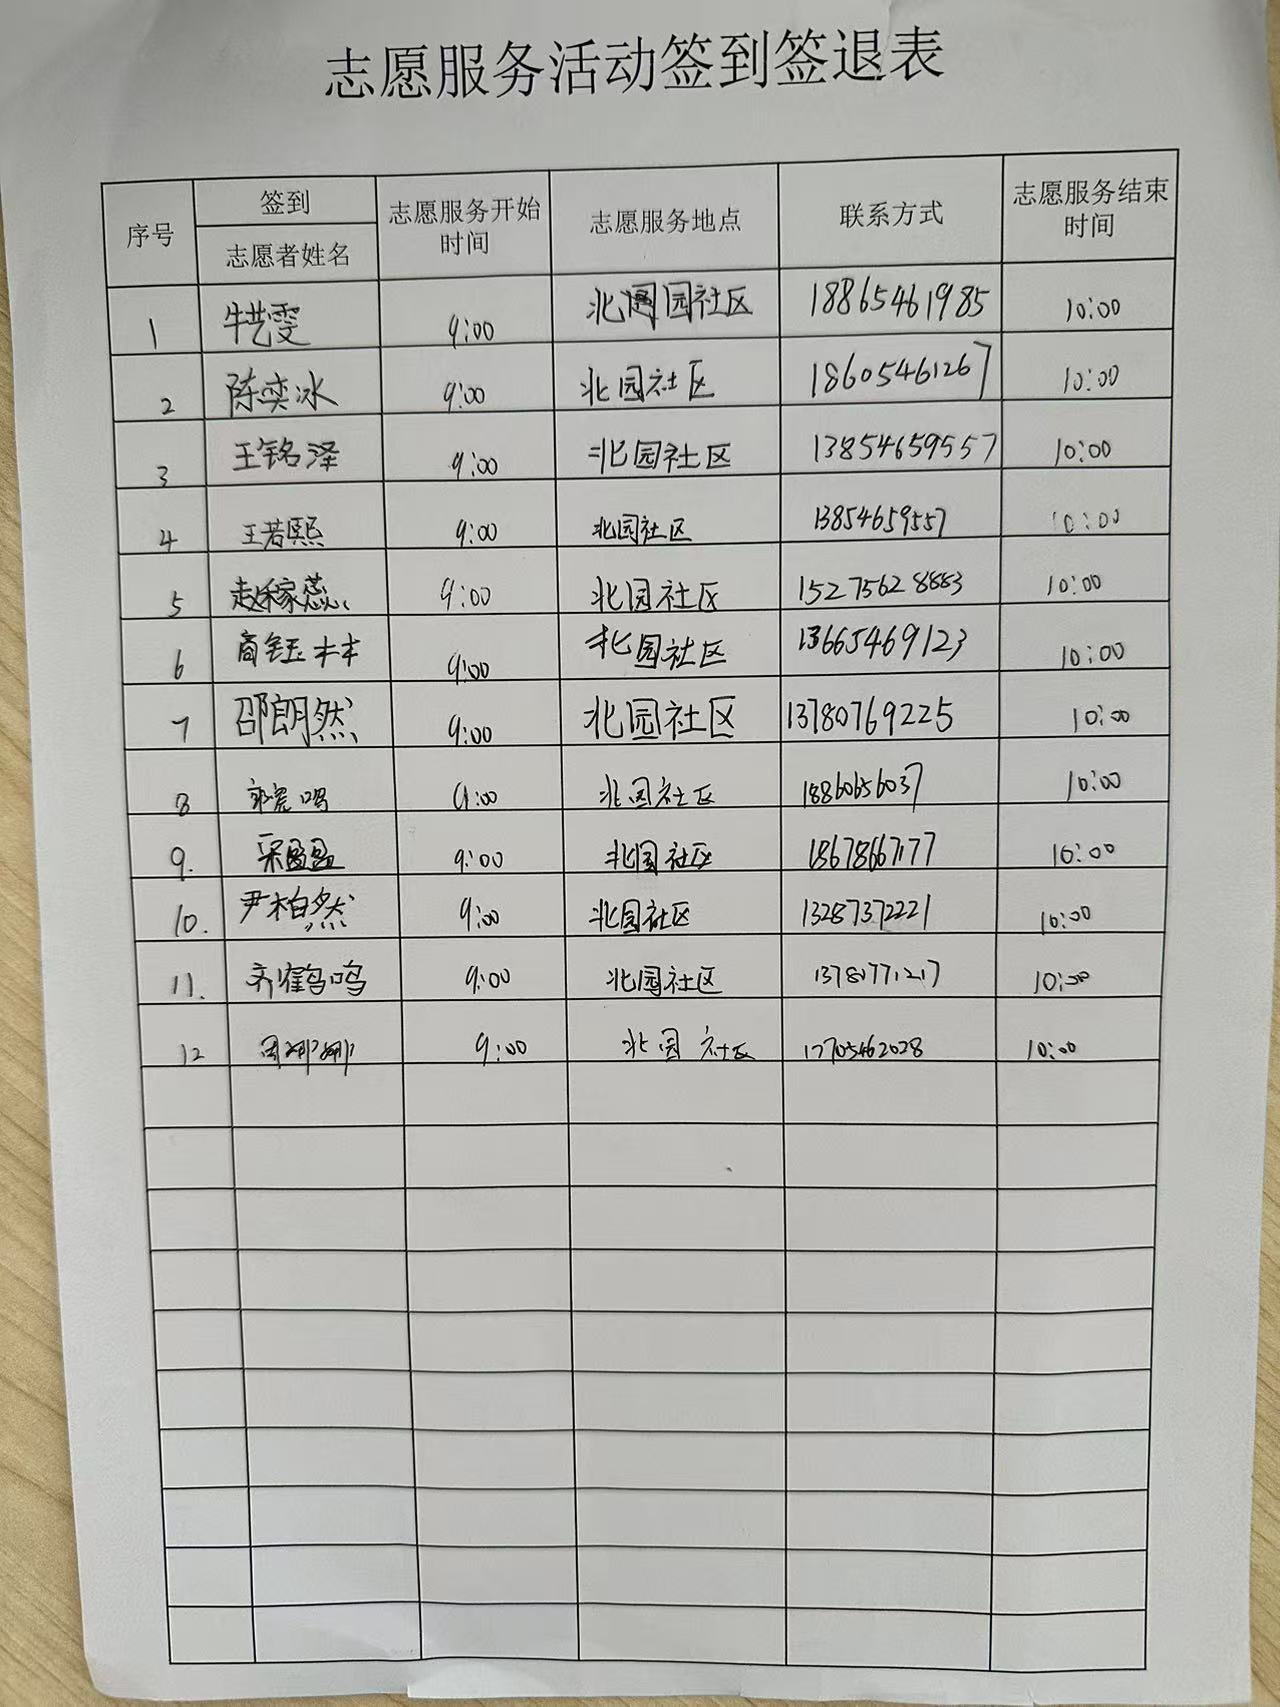 志愿服务活动签到签退表
序号 签到 志愿者姓名 志愿服务开始时间 志愿服务地点 联系方式 志愿服务结束时间
1 牛艺雯 9:00 北园社区 18865461985 10:00
2 陈奕冰 9:00 北园社区 18605461267 10:00
3 王铭泽 9:00 北园社区 13854659557 10:00
4 王若熙 9:00 北园社区 13854659557 10:00
5 赵稼蕊 9:00 北园社区 15275628883 10:00
6 商钰 9:00 北园社区 13665469123 10:00
7 邵朗然 9:00 北园社区 13780769225 10:00
8 9:00 北园社区 10:00
9. 9:00 北园社区 18678667177 10:00
10. 尹柏然 9:00 北园社区 13287372221 10:00
11. 齐鹤鸣 9:00 北园社区 13781771217 10:00
12 周娜娜 9:00 北园社区 17705462028 10:00